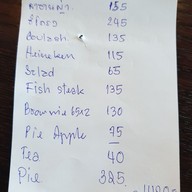 155
245
135
Heineken 115
Salad 65
Fish steak 135
Brownie 65x2 130
Pie Apple 95
Tea 40
Pie 325